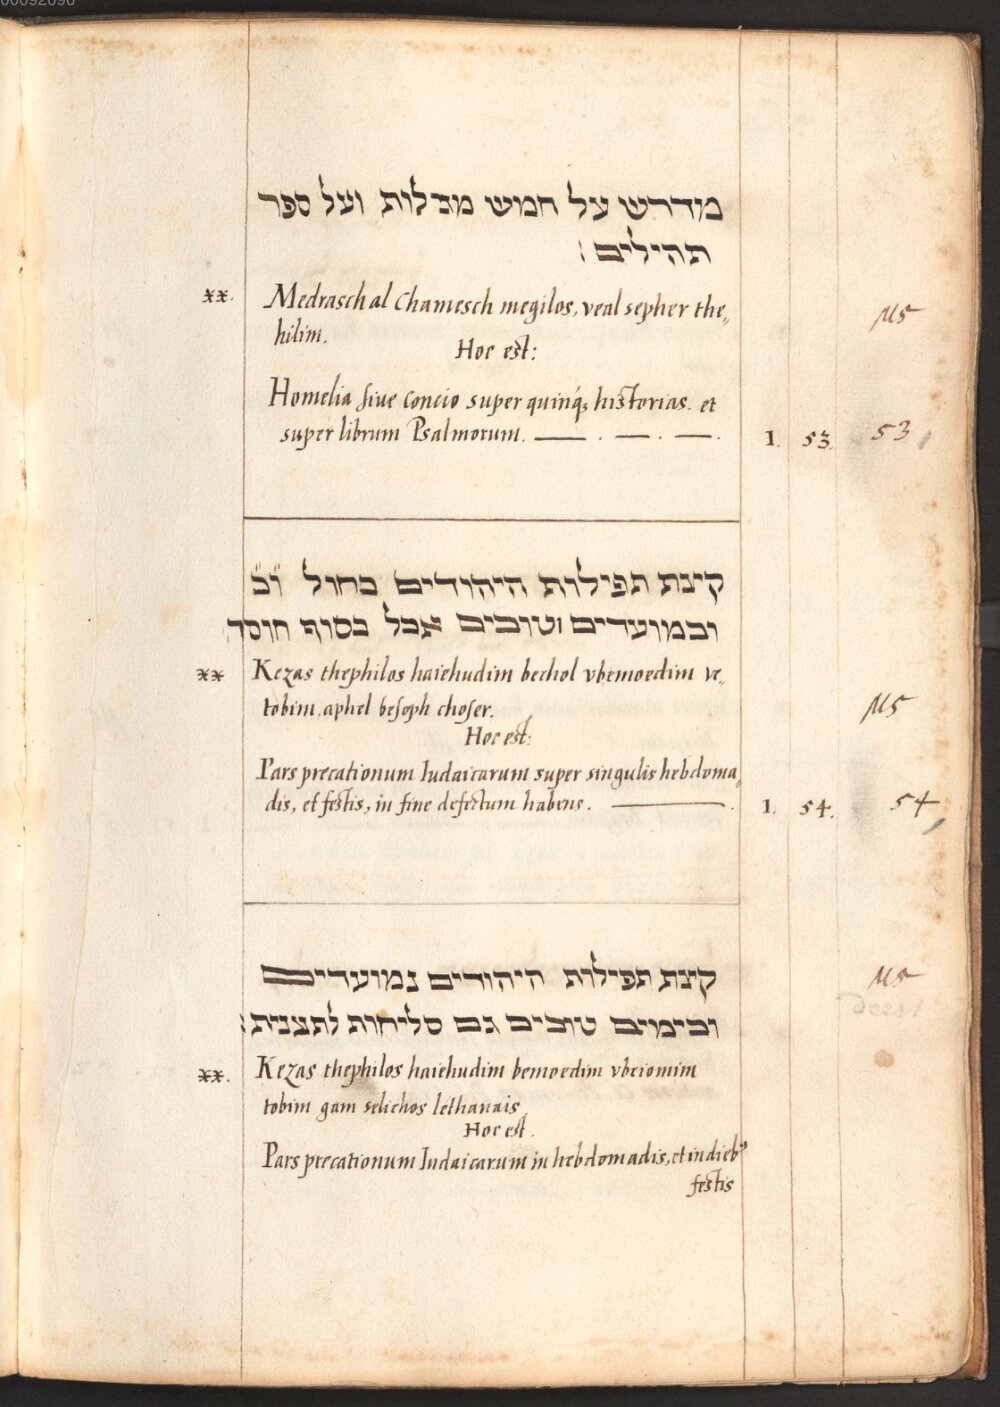 מודרש על חמש מגלות ועל ספר
תהילים :
xx. Medrasch al Chamesch megilos, veal sepher the„
hilim.
Hoc est:
Homelia sive Concio super quinq; historias. et
super librum Psalmorum. — . — . — . 1. 53. 53
MS
קיצת תפילות היהודים בחול וב
ובמועדים וטובים אבל בסוף חוסר
xx Kezas thephilos haiehudim bechol vbemoedim ve„
tobim, aphel besoph choser.
Hoc est:
Pars precationum Iudaicarum super singulis hebdoma„
dis, et festis, in fine defectum habens. — . 1. 54. 54
MS
קיצת תפילות היהודים במועדים
ובימים טובים גם סליחות לתענית :
xx. Kezas thephilos haiehudim bemoedim vbeiomim
tobim gam selichos lethanais.
Hoc est.
Pars precationum Iudaicarum in hebdomadis, et in dieb9
festis
MS
Deest